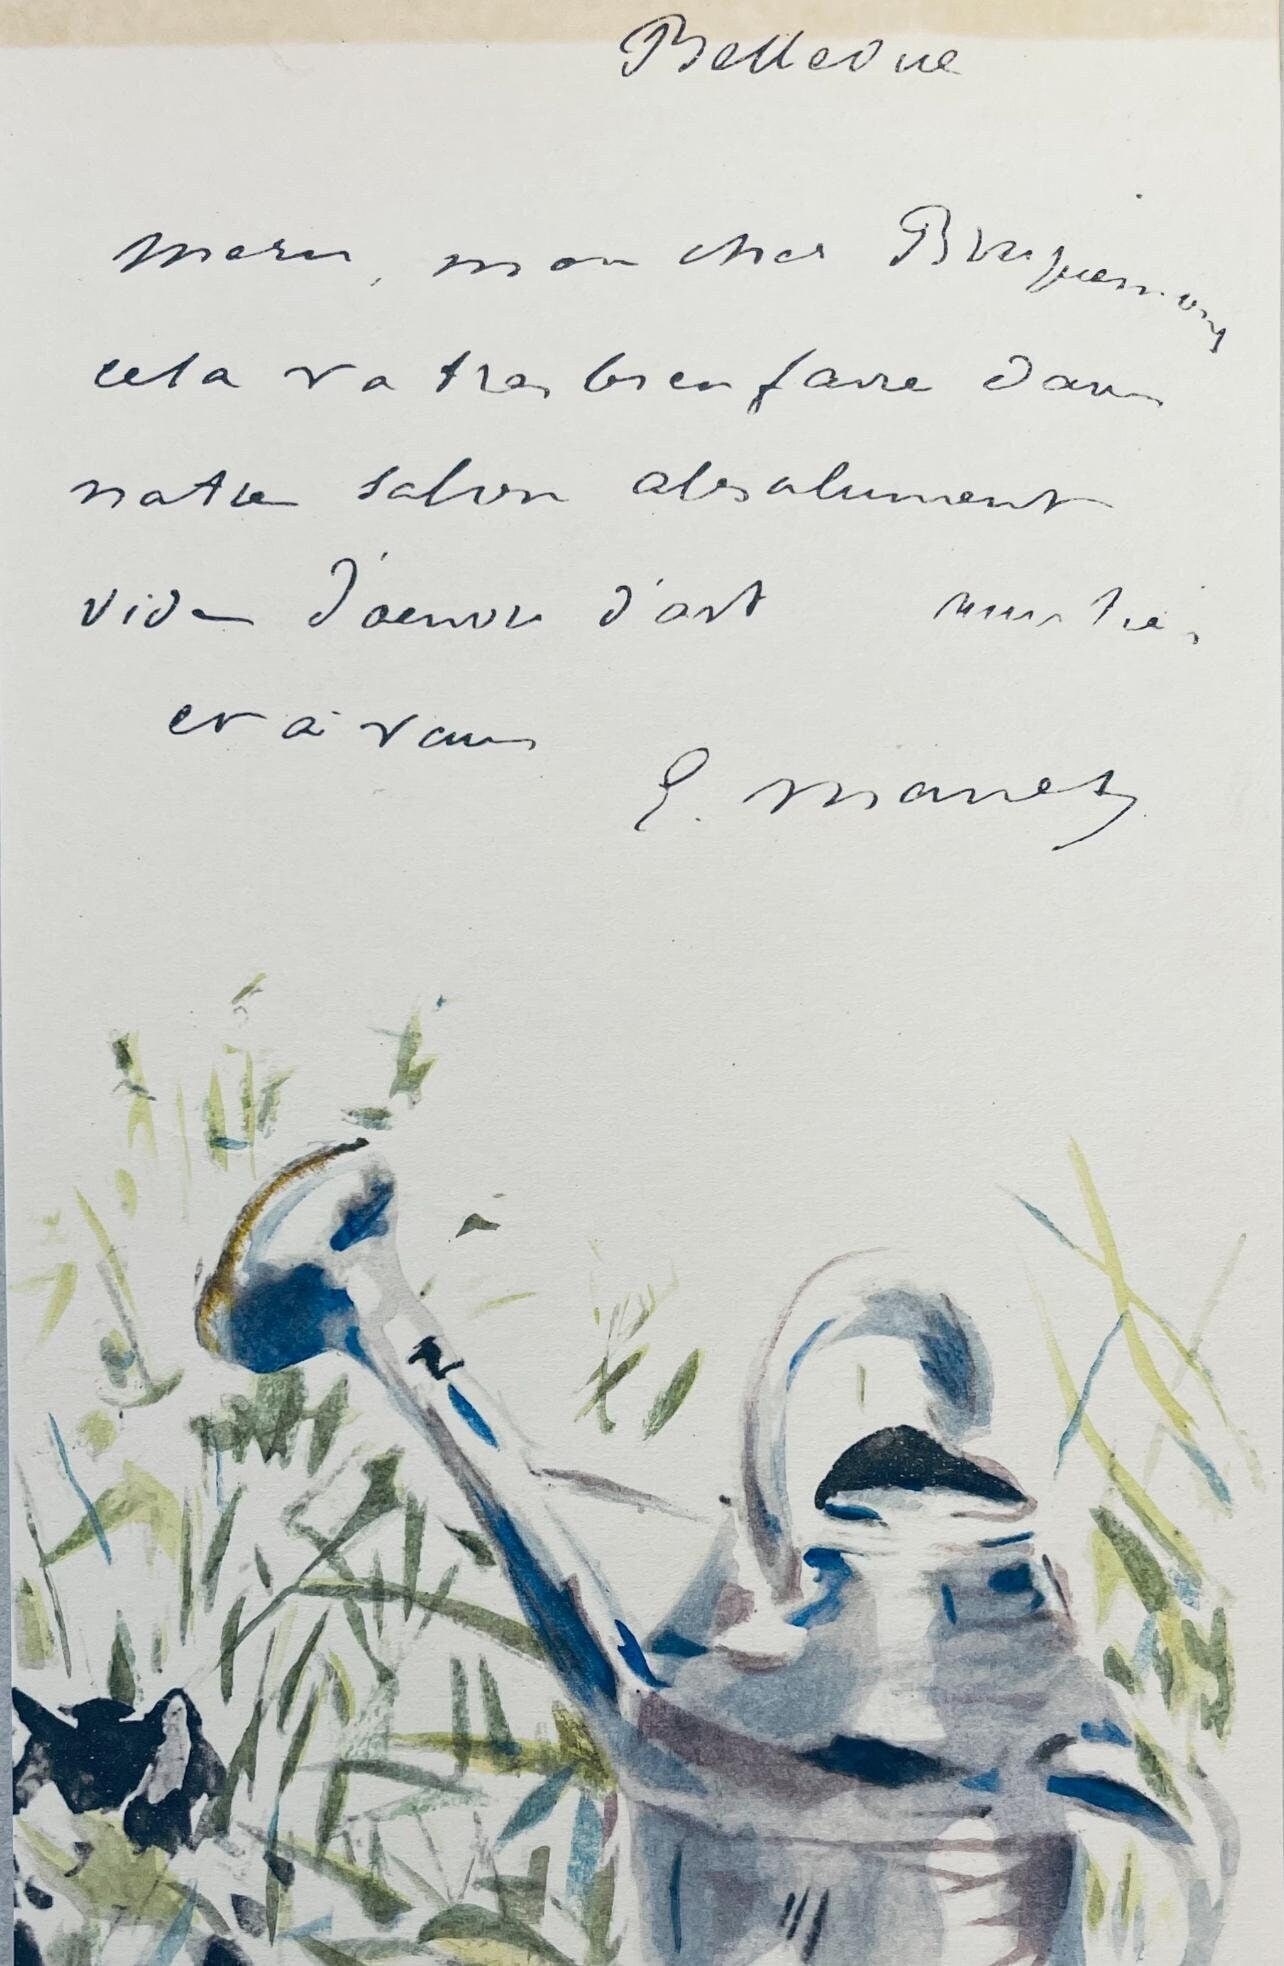 Bellevue
merci, mon cher Bracquemond
cela va très bien faire dans
notre salon absolument
vide d'œuvre d'art
et à vous
E. Manet